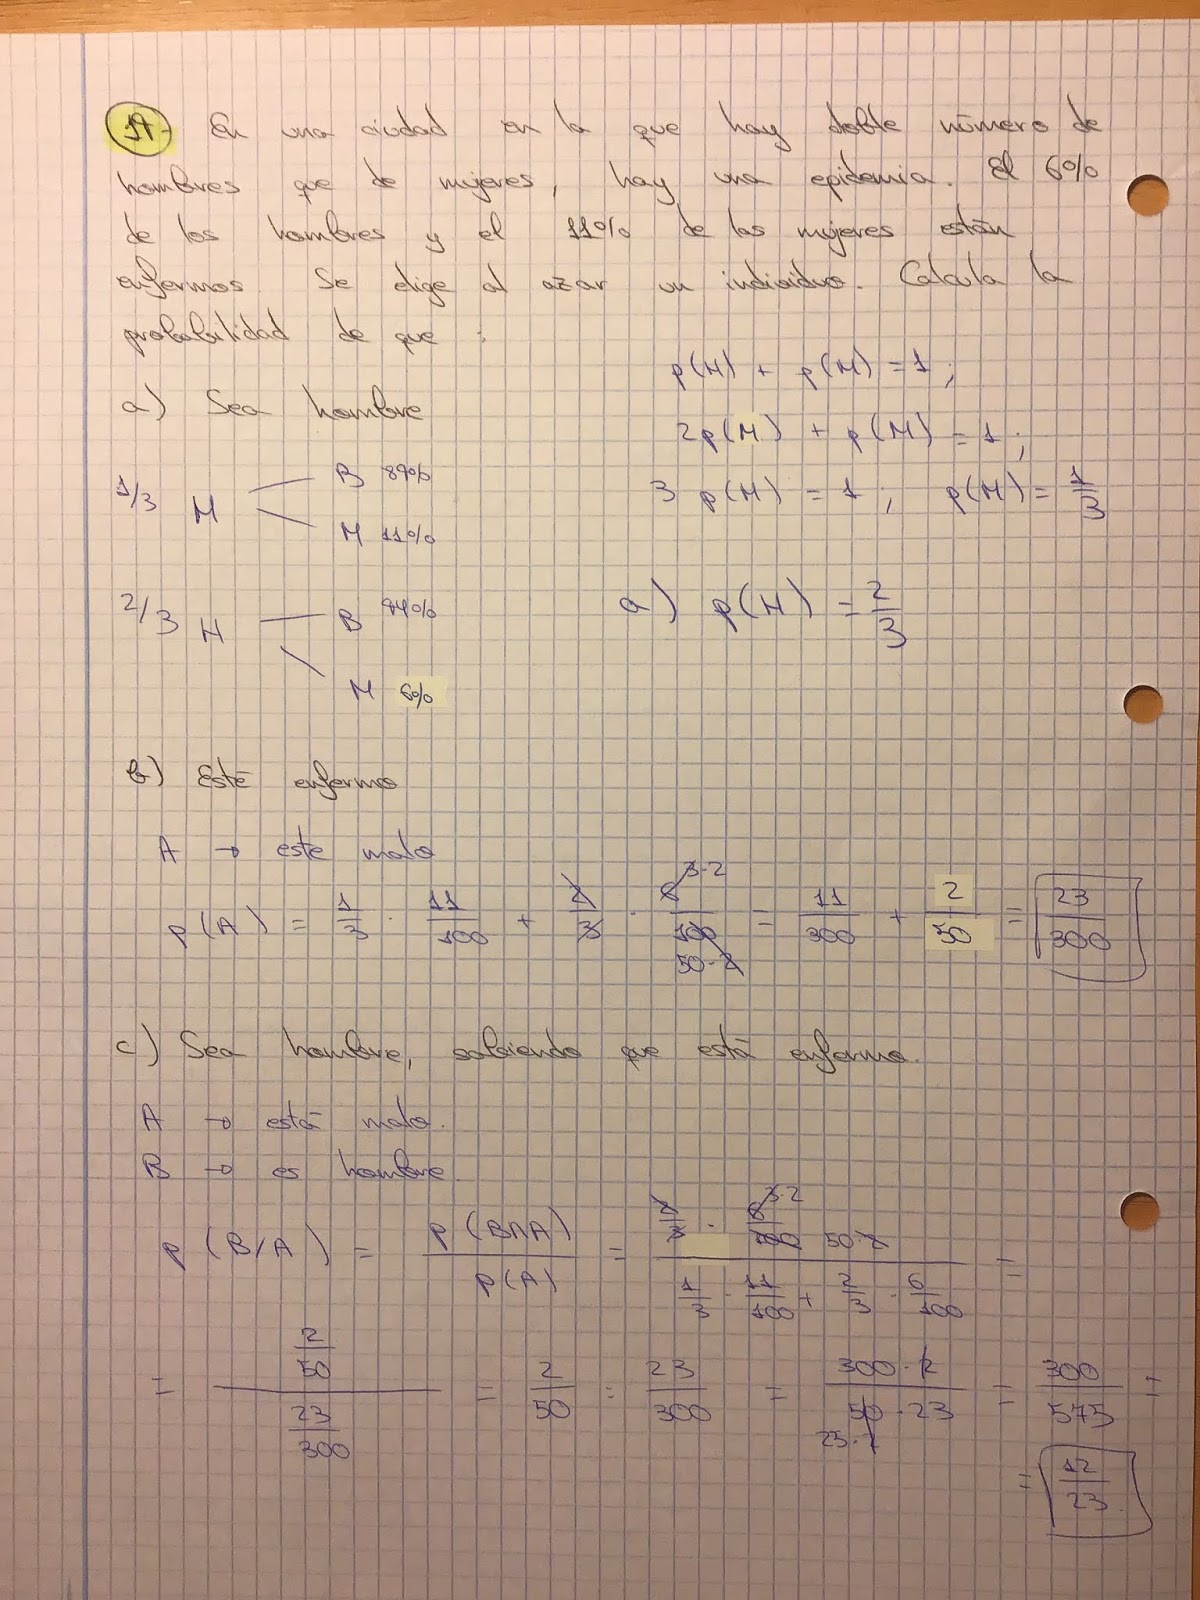 17- En una ciudad en la que hay doble número de
hombres que de mujeres, hay una epidemia. El 6%
de los hombres y el 11% de las mujeres están
enfermos. Se elige al azar un individuo. Calcula la
probabilidad de que :
p(H) + p(M) = 1 ;
a) Sea hombre
2p(M) + p(M) = 1 ;
3 p(M) = 1 ; p(M) = 1/3
1/3 M
B 89%
M 11%
a) p(H) = 2/3
2/3 H
B 94%
M 6%
b) Esté enfermo
A → este malo
p(A) = 1/3 · 11/100 + 2/3 · 6/100 = 11/300 + 2/50 = 23/300
3·2
50·2
c) Sea hombre, sabiendo que está enfermo.
A → está malo.
B → es hombre.
p(B/A) = p(B∩A)/p(A) = (2/3 · 6/100)/(1/3 · 11/100 + 2/3 · 6/100) =
3·2
50·2
= (2/50)/(23/300) = 2/50 : 23/300 = (300·2)/(50·23) = 300/575 =
25·2
= 12/23